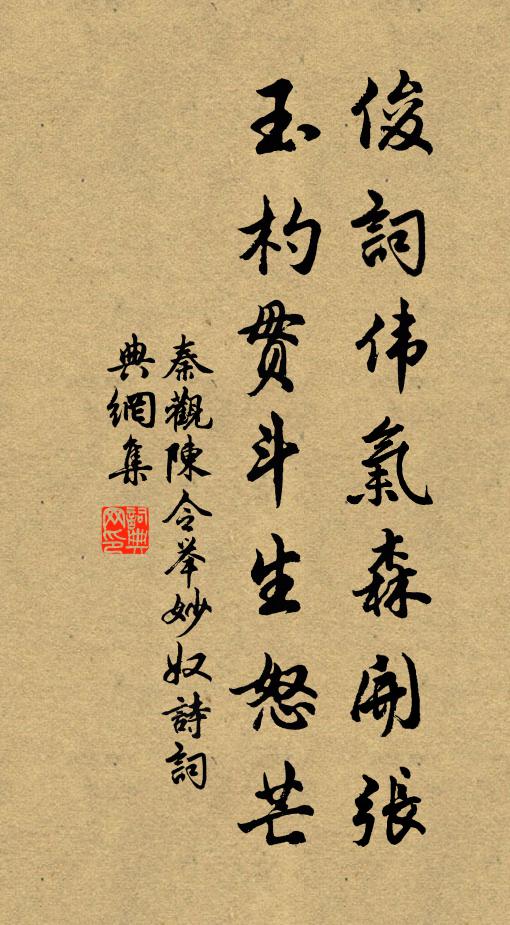 俊詞伟氣森開張
玉杓贯斗生怒芒
秦觀陳令举妙奴詩詞
典網集
詞典
网印